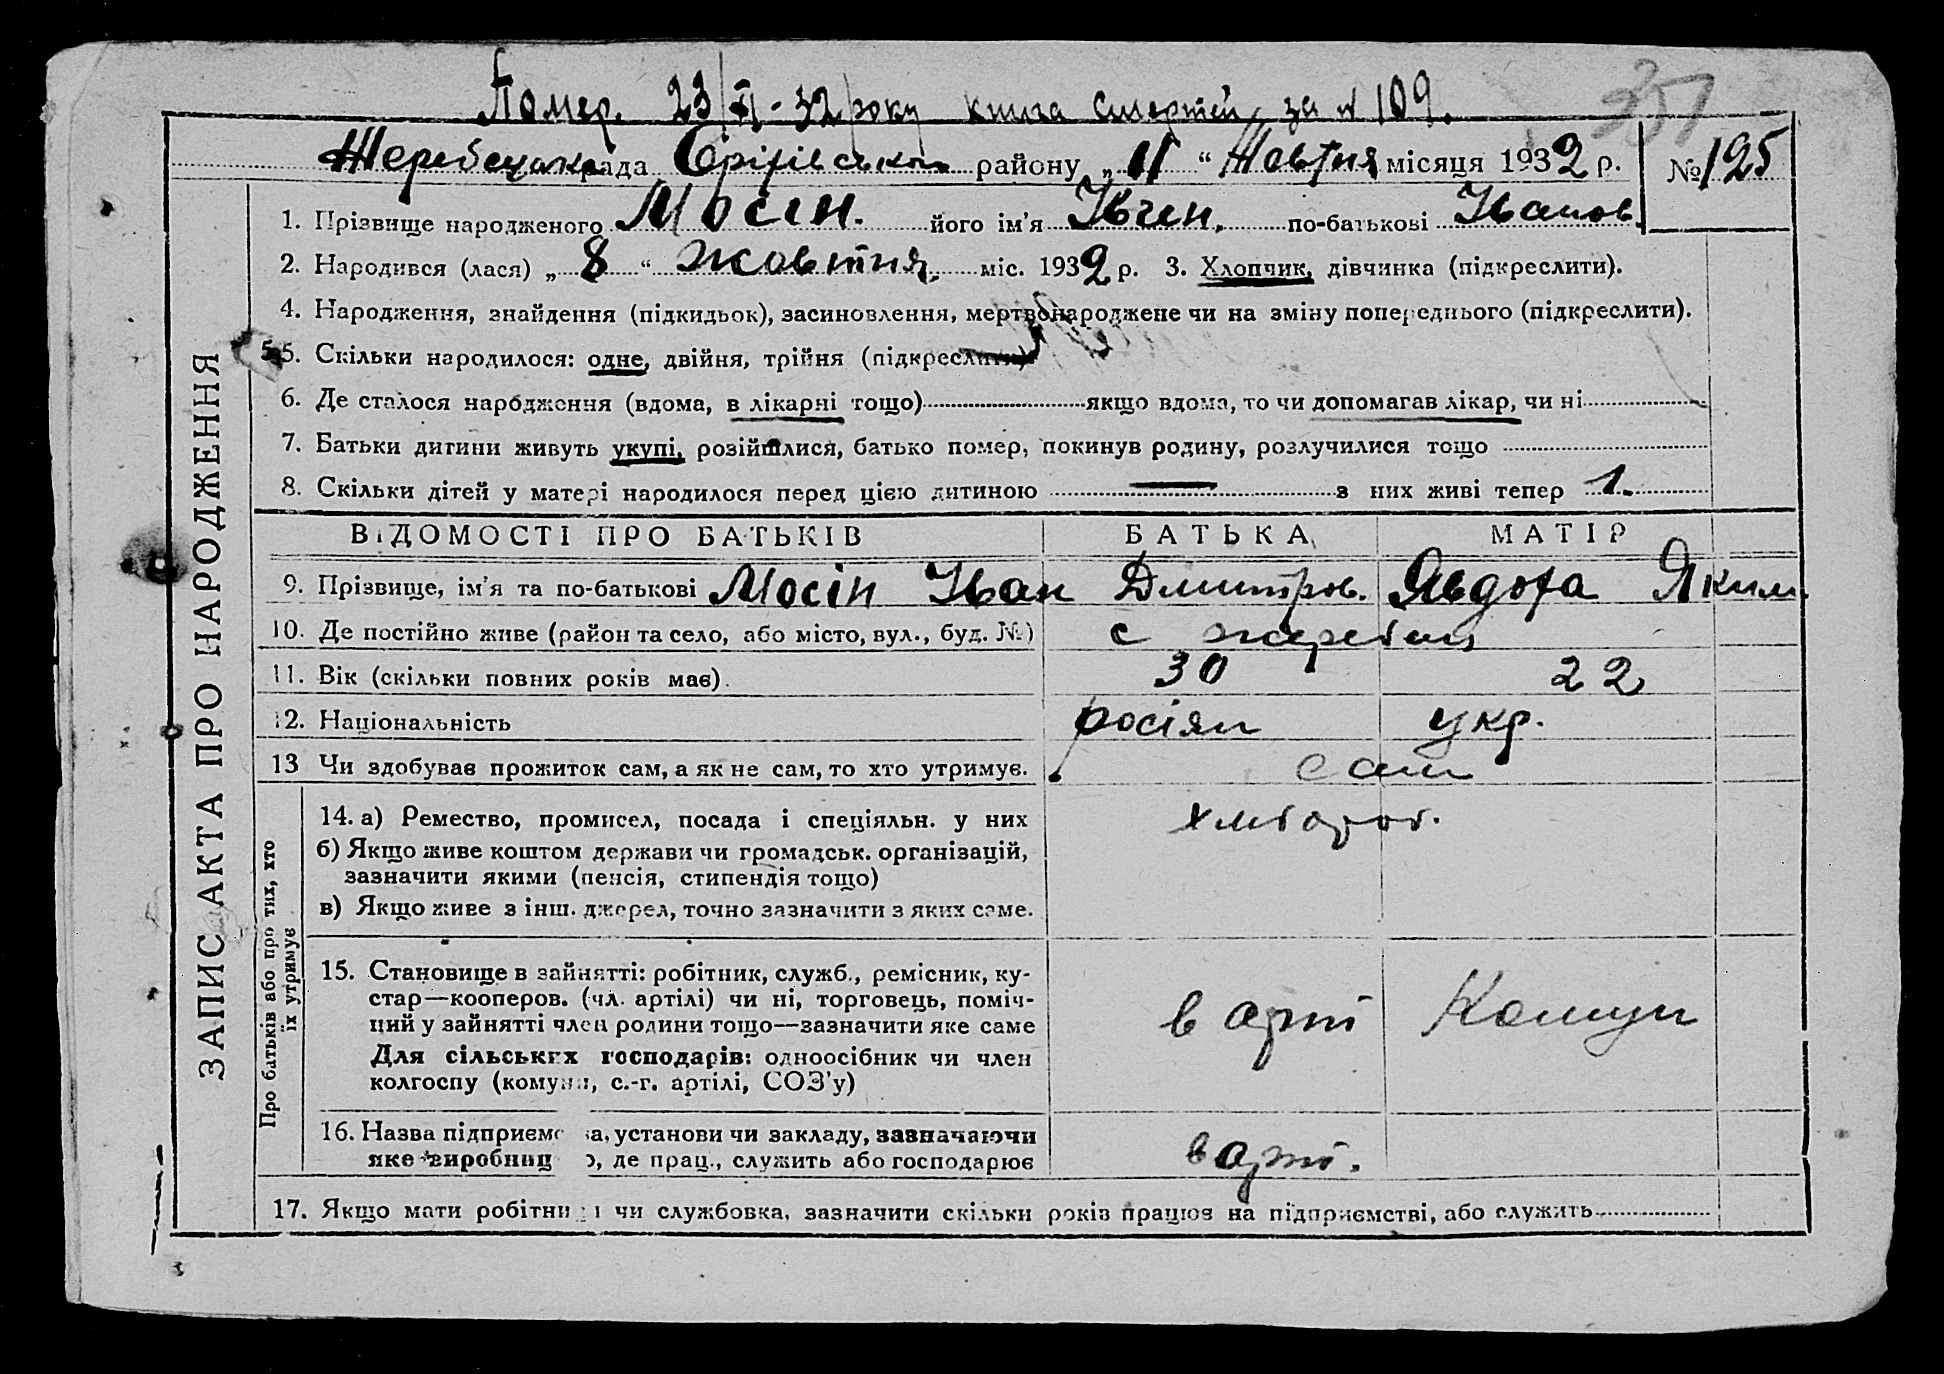 Помер. 23/XI-32 року книга смертей за № 109.
351
Жеребецька рада Оріхівськ району „11“ Жовтня місяця 1932 р. № 125
1. Прізвище народженого Мосін. його ім'я Івген. по-батькові Іванов.
2. Народився (лася) „8“ жовтня міс. 1932 р. 3. Хлопчик, дівчинка (підкреслити).
4. Народження, знайдення (підкидьок), засиновлення, мертвонароджене чи на зміну попереднього (підкреслити).
5. Скільки народилося: одне, двійня, трійня (підкреслити)
6. Де сталося народження (вдома, в лікарні тощо) якщо вдома, то чи допомагав лікар, чи ні
7. Батьки дитини живуть укупі, розійшлися, батько помер, покинув родину, розлучилися тощо
8. Скільки дітей у матері народилося перед цією дитиною — з них живі тепер 1.
ВІДОМОСТІ ПРО БАТЬКІВ БАТЬКА МАТІР
9. Прізвище, ім'я та по-батькові Мосін Іван Дмитров. Явдоха Яким.
10. Де постійно живе (район та село, або місто, вул., буд. №) с жеребец
11. Вік (скільки повних років має). 30 22
12. Національність росіян укр.
13 Чи здобуває прожиток сам, а як не сам, то хто утримує. сам
14. а) Ремество, промисел, посада і спеціяльн. у них хлібороб.
б) Якщо живе коштом держави чи громадськ. організацій,
зазначити якими (пенсія, стипендія тощо)
в) Якщо живе з інш. джерел, точно зазначити з яких саме.
15. Становище в зайнятті: робітник, служб., ремісник, ку-
стар—кооперов. (чл. артілі) чи ні, торговець, поміч-
ний у зайнятті член родини тощо—зазначити яке саме в арті Комун
Для сільських господарів: одноосібник чи член
колгоспу (комуни, с.-г. артілі, СОЗ'у)
16. Назва підприємства, установи чи закладу, зазначаючи
яке виробниц о, де прац., служить або господарює в арті.
17. Якщо мати робітниця чи службовка, зазначити скільки років працює на підприємстві, або служить
ЗАПИС АКТА ПРО НАРОДЖЕННЯ
Про батьків або про тих, хто
їх утримує